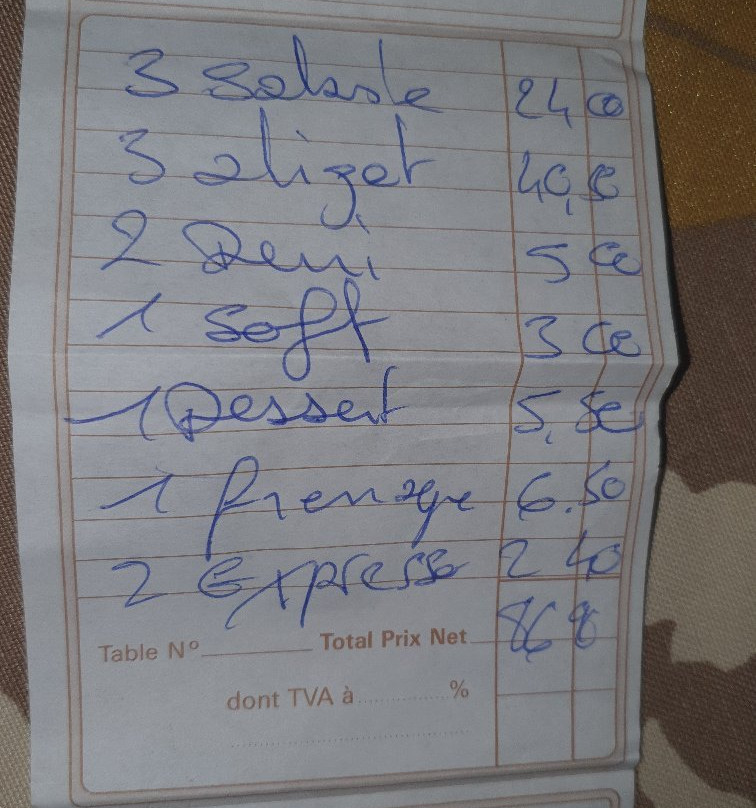 3 Salade 24 00
3 aligot 40,50
2 Demi 5 00
1 Soft 3 00
1 Dessert 5,50
1 fromage 6.50
2 expresso 2 40
Table Nº Total Prix Net 86
dont TVA à %